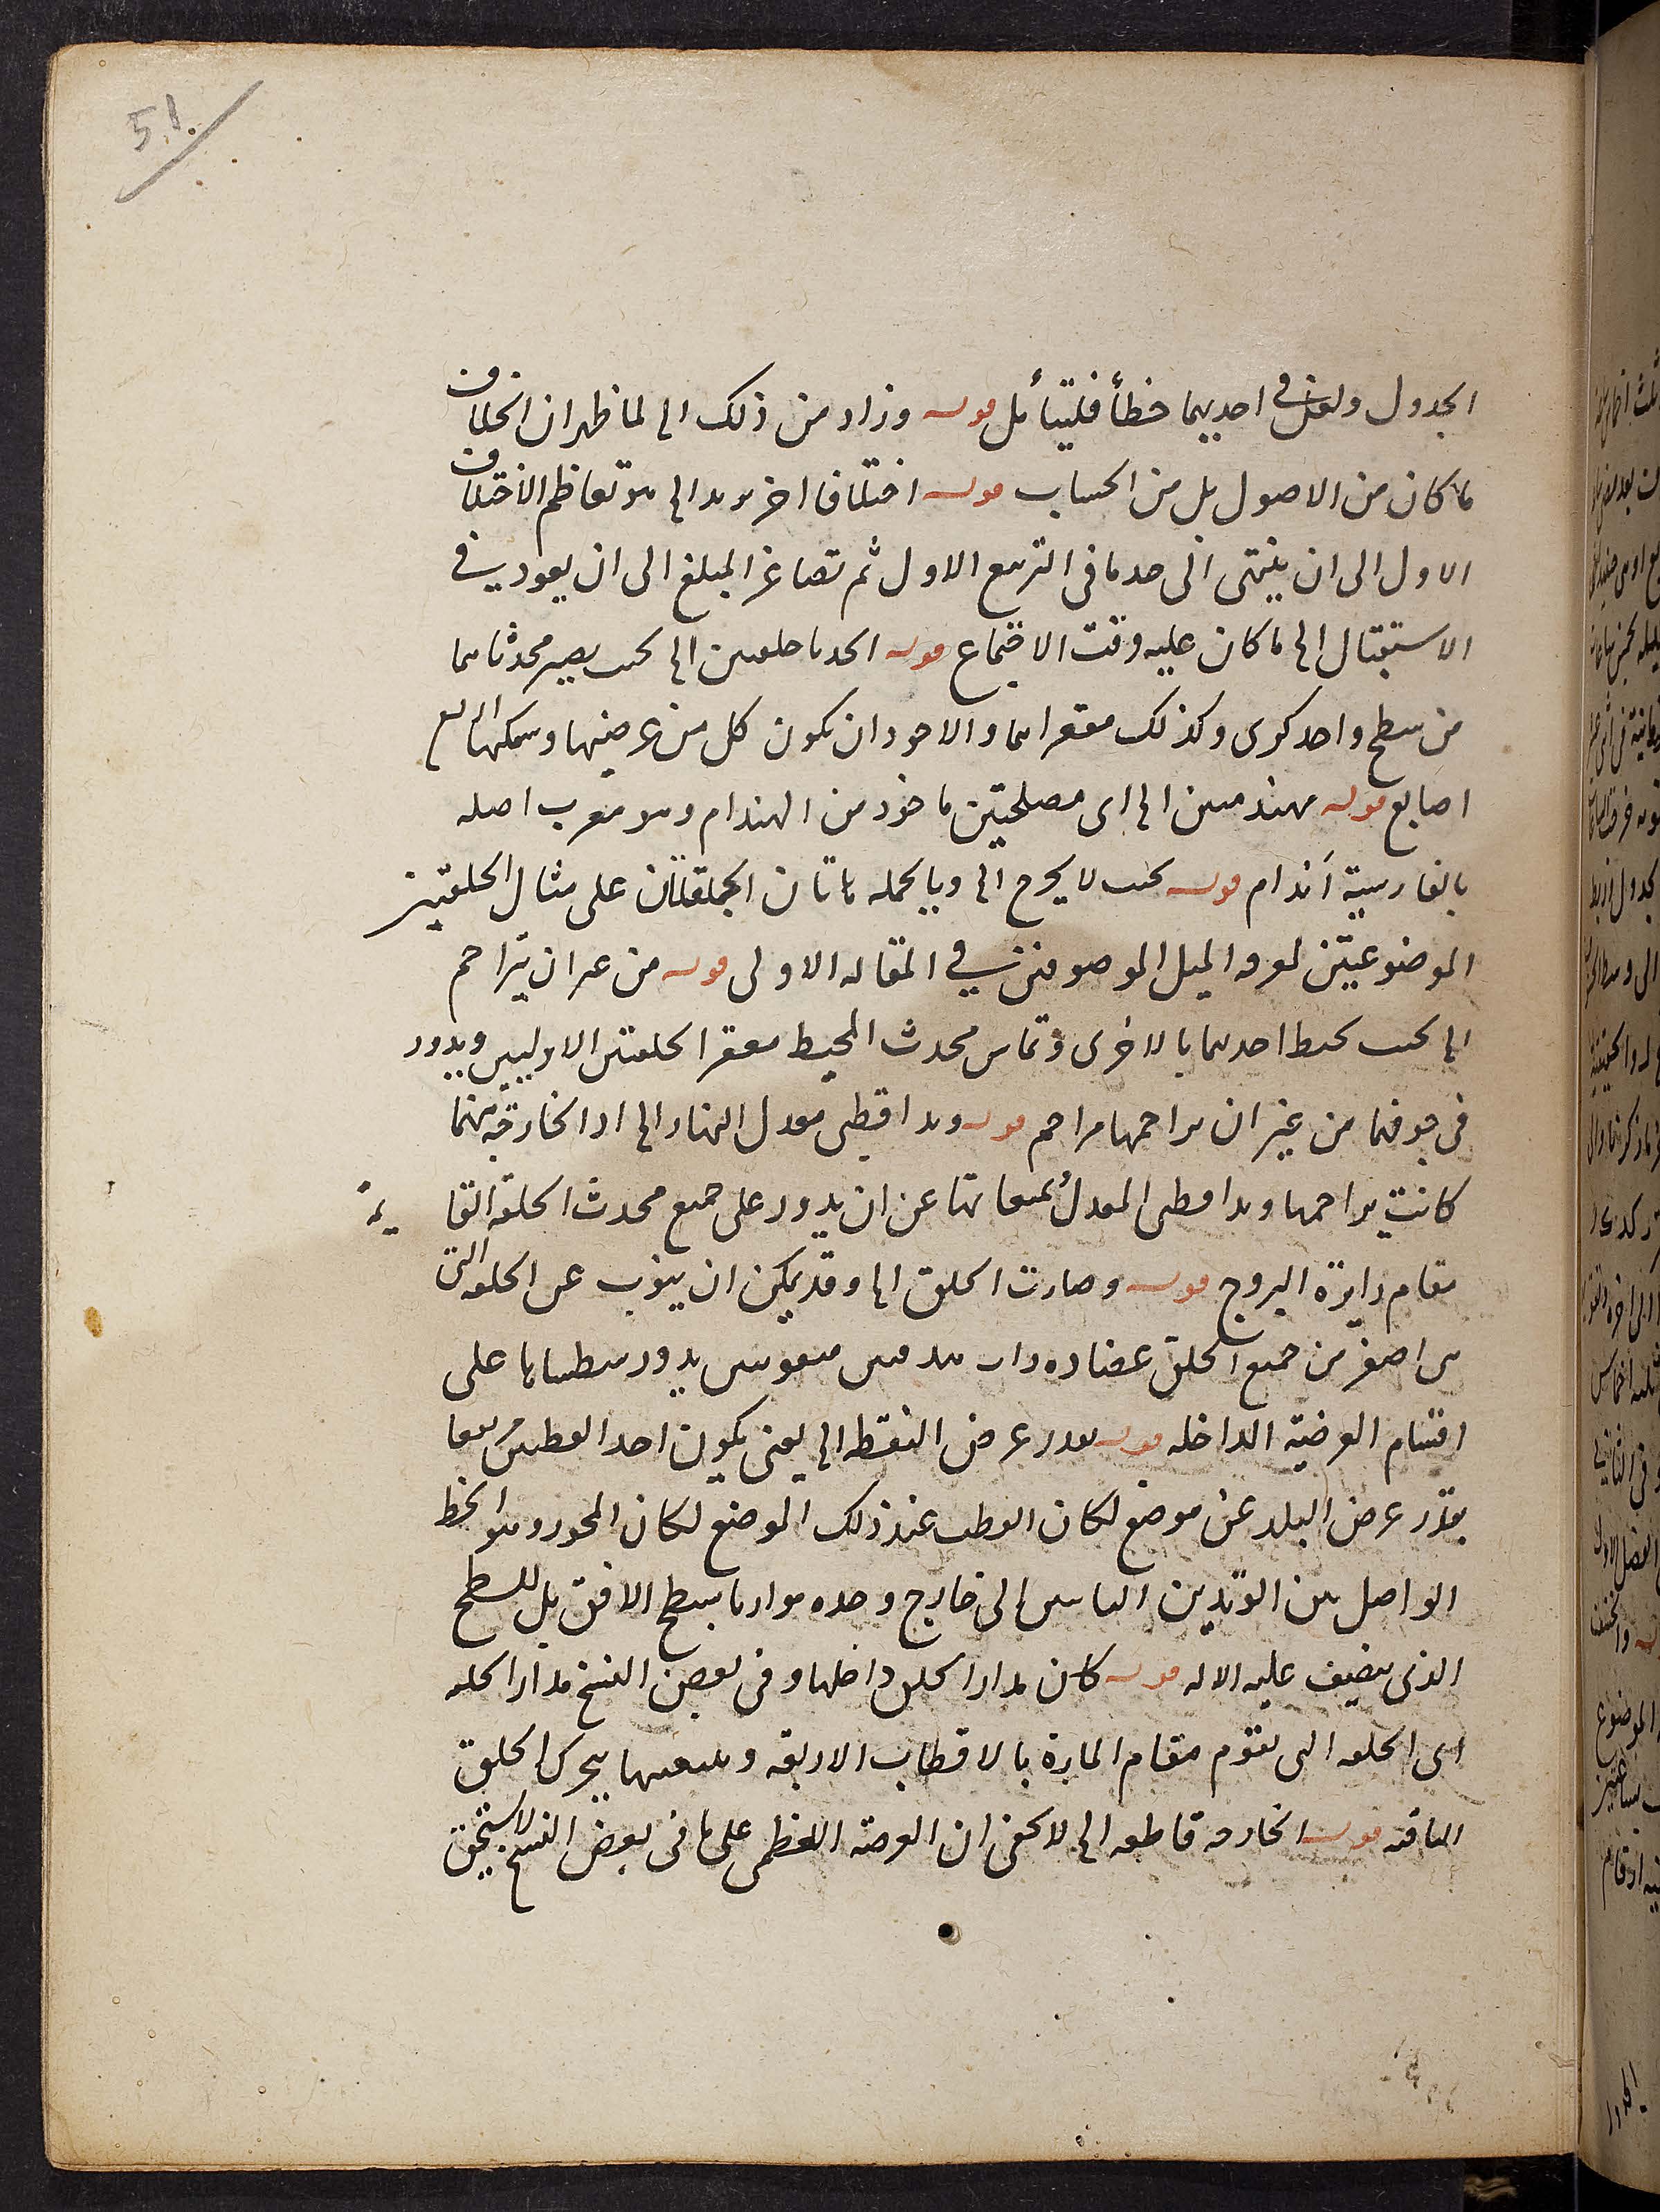 51
الجدول ولعل في احديهما خطأ فليتأمل قوله وزاد من ذلك الى لما ظهر ان الخلاف
ما كان من الاصول بل من الحساب قوله اختلافا اخر الى هو تعاظم الاختلاف
الاول الى ان ينتهى الى حد ما فى التربيع الاول ثم تصاغر المبلغ الى ان يعود في
الاستقبال الى ما كان عليه وقت الاجتماع قوله اتخذنا حلقتين الى بحيث يصير محدثاهما
من سطح واحد كرى وكذلك مقعراهما والاجود ان يكون كل من عرضيها وسمكها اربع
اصابع قوله مهندمتين الى اى مصلحتين ماخوذ من الهندام وهو معرب اصله
بالفارسية أندام قوله بحيث لا يخرج الى وبالجمله هاتان الحلقتان على مثال الحلقتين
الموضوعتين لمعرفه الميل الموصوفتين في المقاله الاولى قوله من غير ان يتزاحم
الى بحيث يحيط احديهما بالاخرى وتماس محدث المحيط مقعر الحلقتين الاوليين ويدور
فى جوفهما من غير ان يزاحمها مزاحم قوله وتدا قطبى معدل النهار الى اذ الخارجة منهما
كانت يزاحمها وتدا قطبى المعدل تمنعانها عن ان يدور على جميع محدث الحلقه القايمة
مقام دايرة البروج قوله وصارت الحلق الى وقد يمكن ان ينوب عن الحلقه التى
هى اصغر من جميع الحلق عضاده ذات هدفين مثقوبين يدور شظيتاها على
اقسام العرضية الداخله قوله بقدر عرض النقطه الى يعنى يكون احد القطبين مرتفعا
بقدر عرض البلد عن موضع لكان القطب عند ذلك الموضع لكان المحور وهو الخط
الواصل بين الوتدين الناتيين الى خارج وحده موازيا لسطح الافق بل للسطح
الذى ينصب عليه الاله قوله كان مدار الحلق داخلها وفى بعض النسخ مدار الحلقه
اى الحلقه التى تقوم مقام المارة بالاقطاب الاربعه وبتبعيتها يتحرك الحلق
الباقيه قوله الخارجه قاطعه الى لا يخفى ان العرضيه العظمى على ما فى بعض النسخ لا يستحق